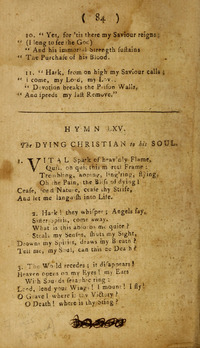 ( 84 )
10. " Yes, see 'tis there my Saviour reigns;
" (I long to see the God)
" And his immortal strength sustains
" The Purchase of his Blood.
11. " Hark, from on high my Saviour calls;
" I come, my Lord, my Love;
" Devotion breaks the Prison Walls,
" And speeds my last Remove."
HYMN LXV.
The DYING CHRISTIAN to his SOUL.
1. VITAL Spark of heav'nly Flame,
Quit, oh quit this mortal Frame;
Trembling, hoping, ling'ring, flying,
Oh the Pain, the Bliss of dying!
Cease, fond Nature, cease thy Strife,
And let me languish into Life.
2. Hark! they whisper; Angels say,
Sister spirit, come away.
What is this absorbs me quite?
Steals my Senses, shuts my Sight,
Drowns my Spirits, draws my Breath?
Tell me, my Soul, can this be Death?
3. The World recedes; it disappears!
Heaven opens on my Eyes! my Ears
With Sounds seraphic ring:
Lend, lend your Wings! I mount! I fly!
O Grave! where is thy Victory?
O Death! where is thy Sting?